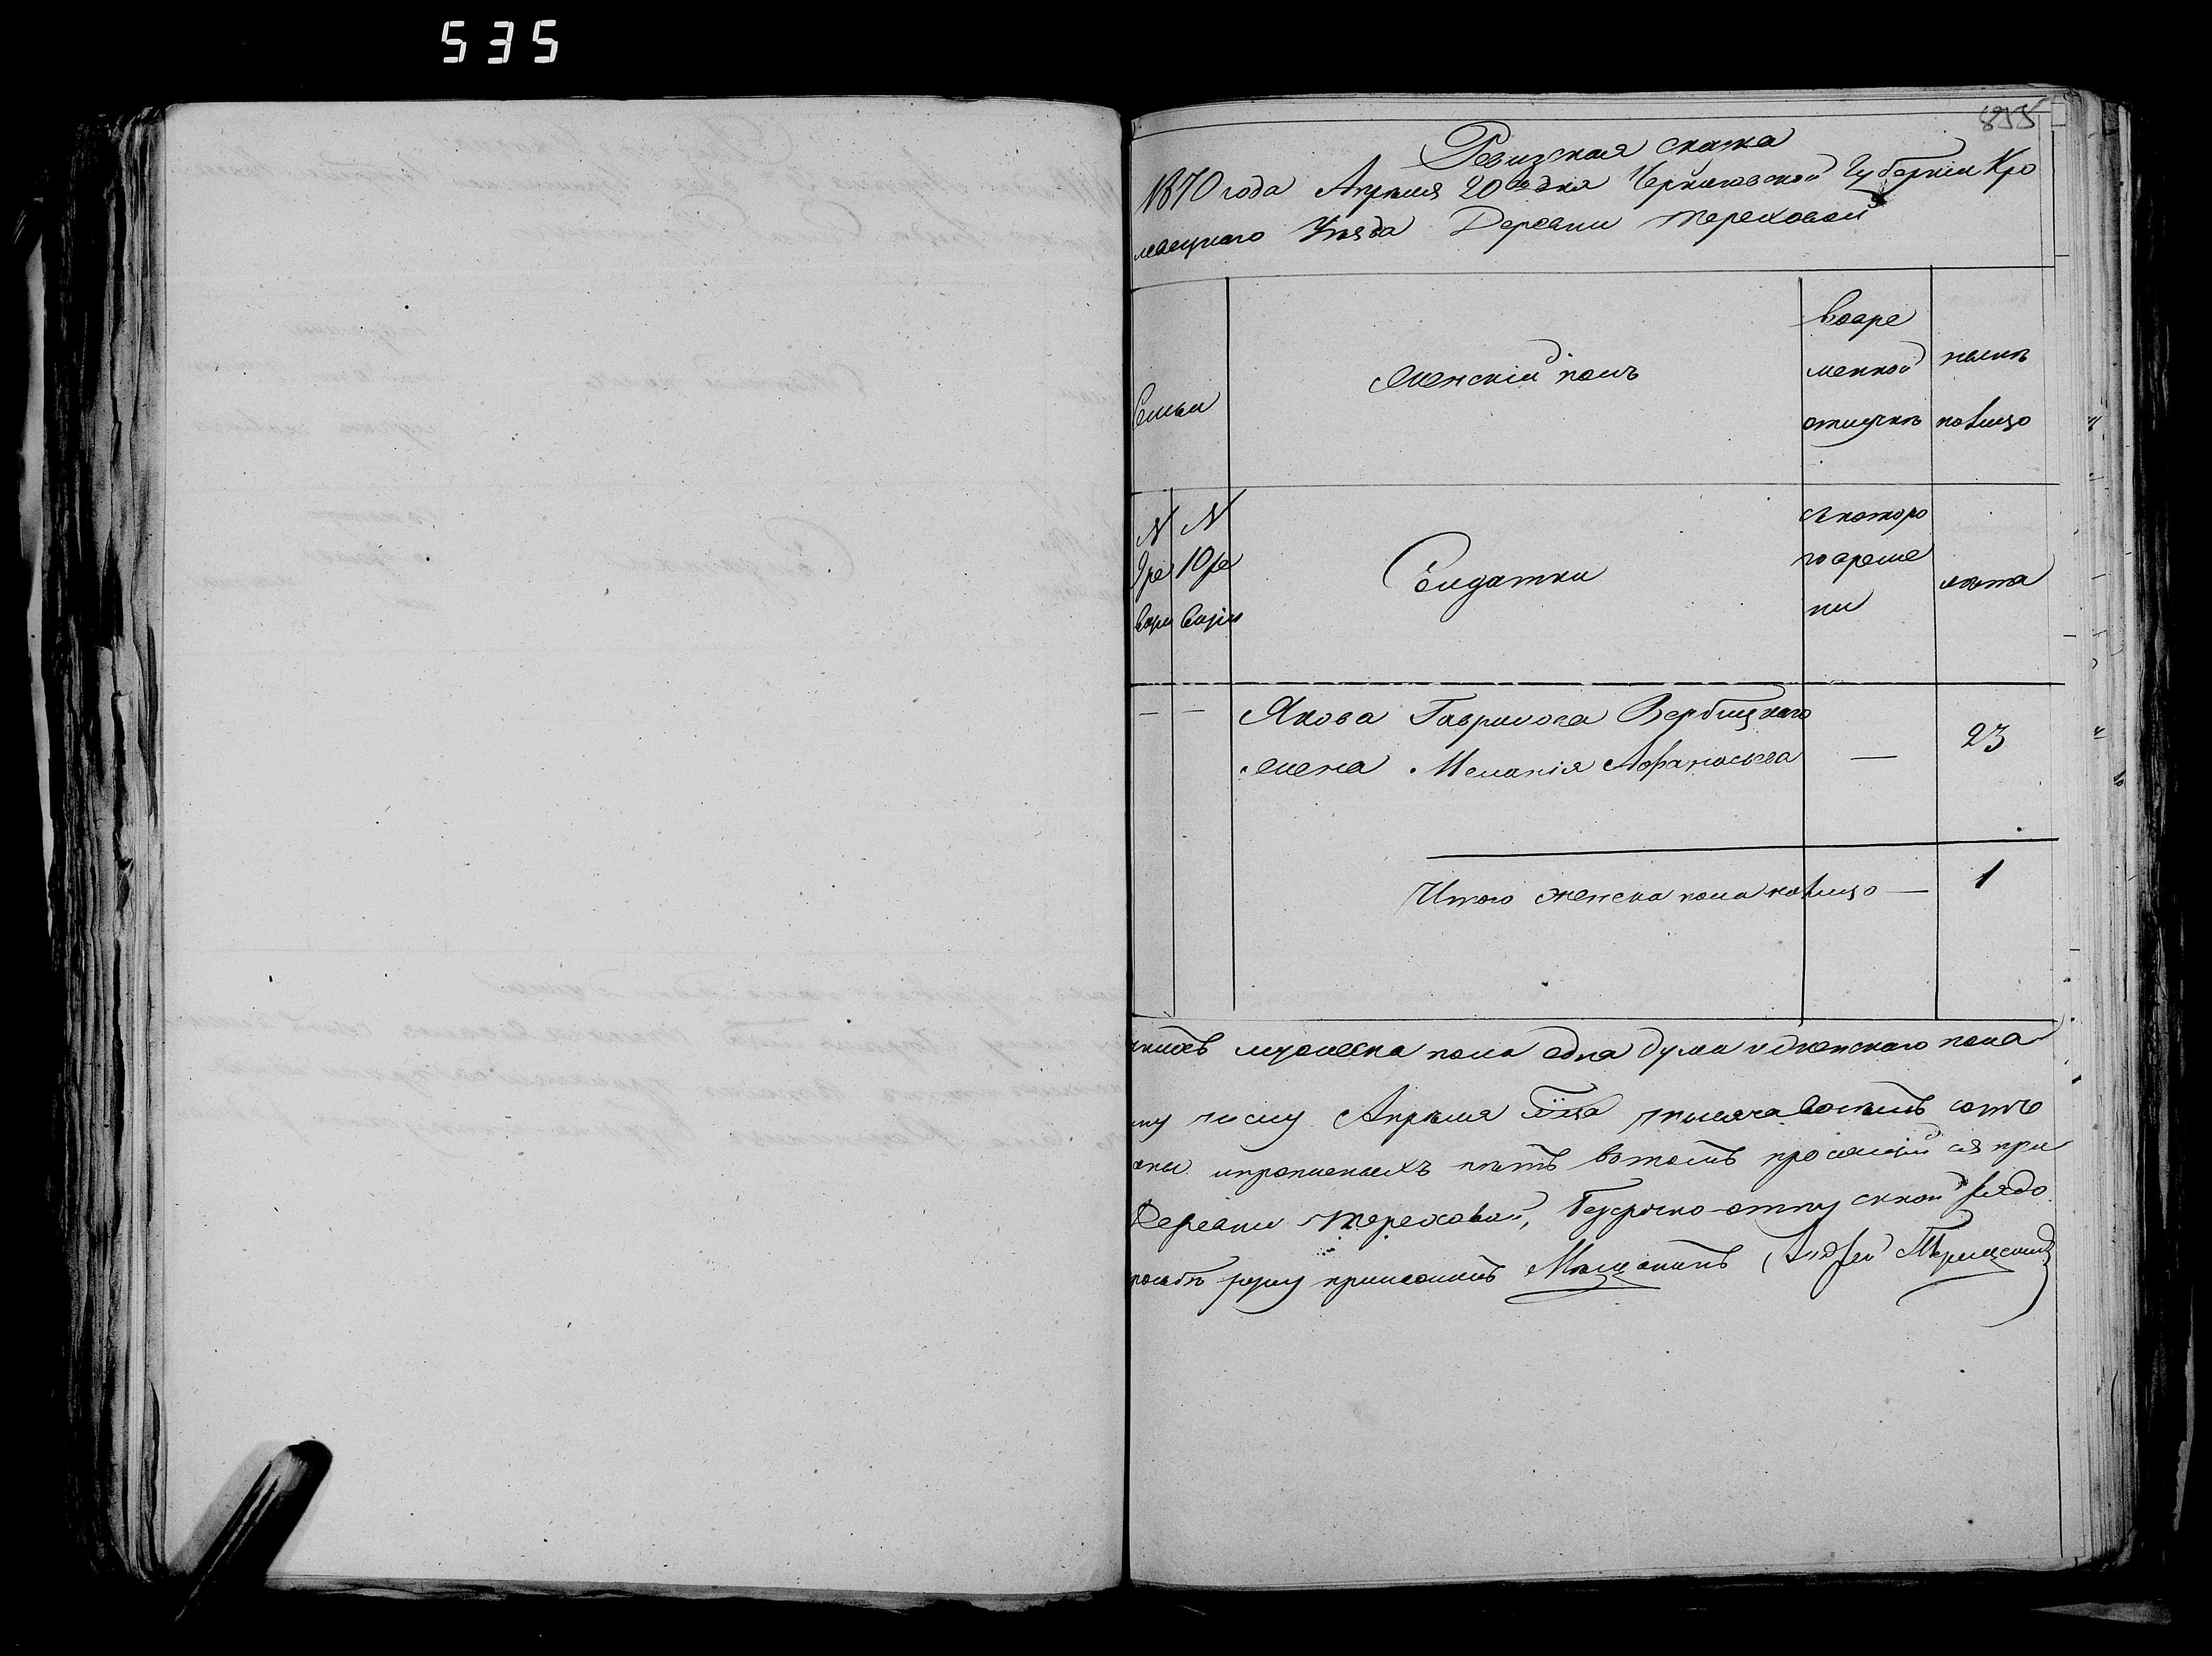 535
855
Ревизская сказка
1870 года Апреля 20го дня Черниговской Губернии Кро
левецкаго Уезда Деревни Тереховой
Семьи
Женский полъ
Вовре
менной
отлучке
ныне
налицо
N N
9 ре 10 ре
визи визии
Солдатки
съ которо
го време
ни
лета
— — Якова Гаврилова Вербицкаго
жена Мелания Афанасьева — 23
Итого женска пола налицо — 1
мужеска пола одна душа и женскаго пола
му числу Апреля тысяча восемь сотъ
и прописныхъ нетъ в томъ
Деревни Тереховой, безсрочно-отпускной рядо
руку приложилъ Мещанинъ Андрей